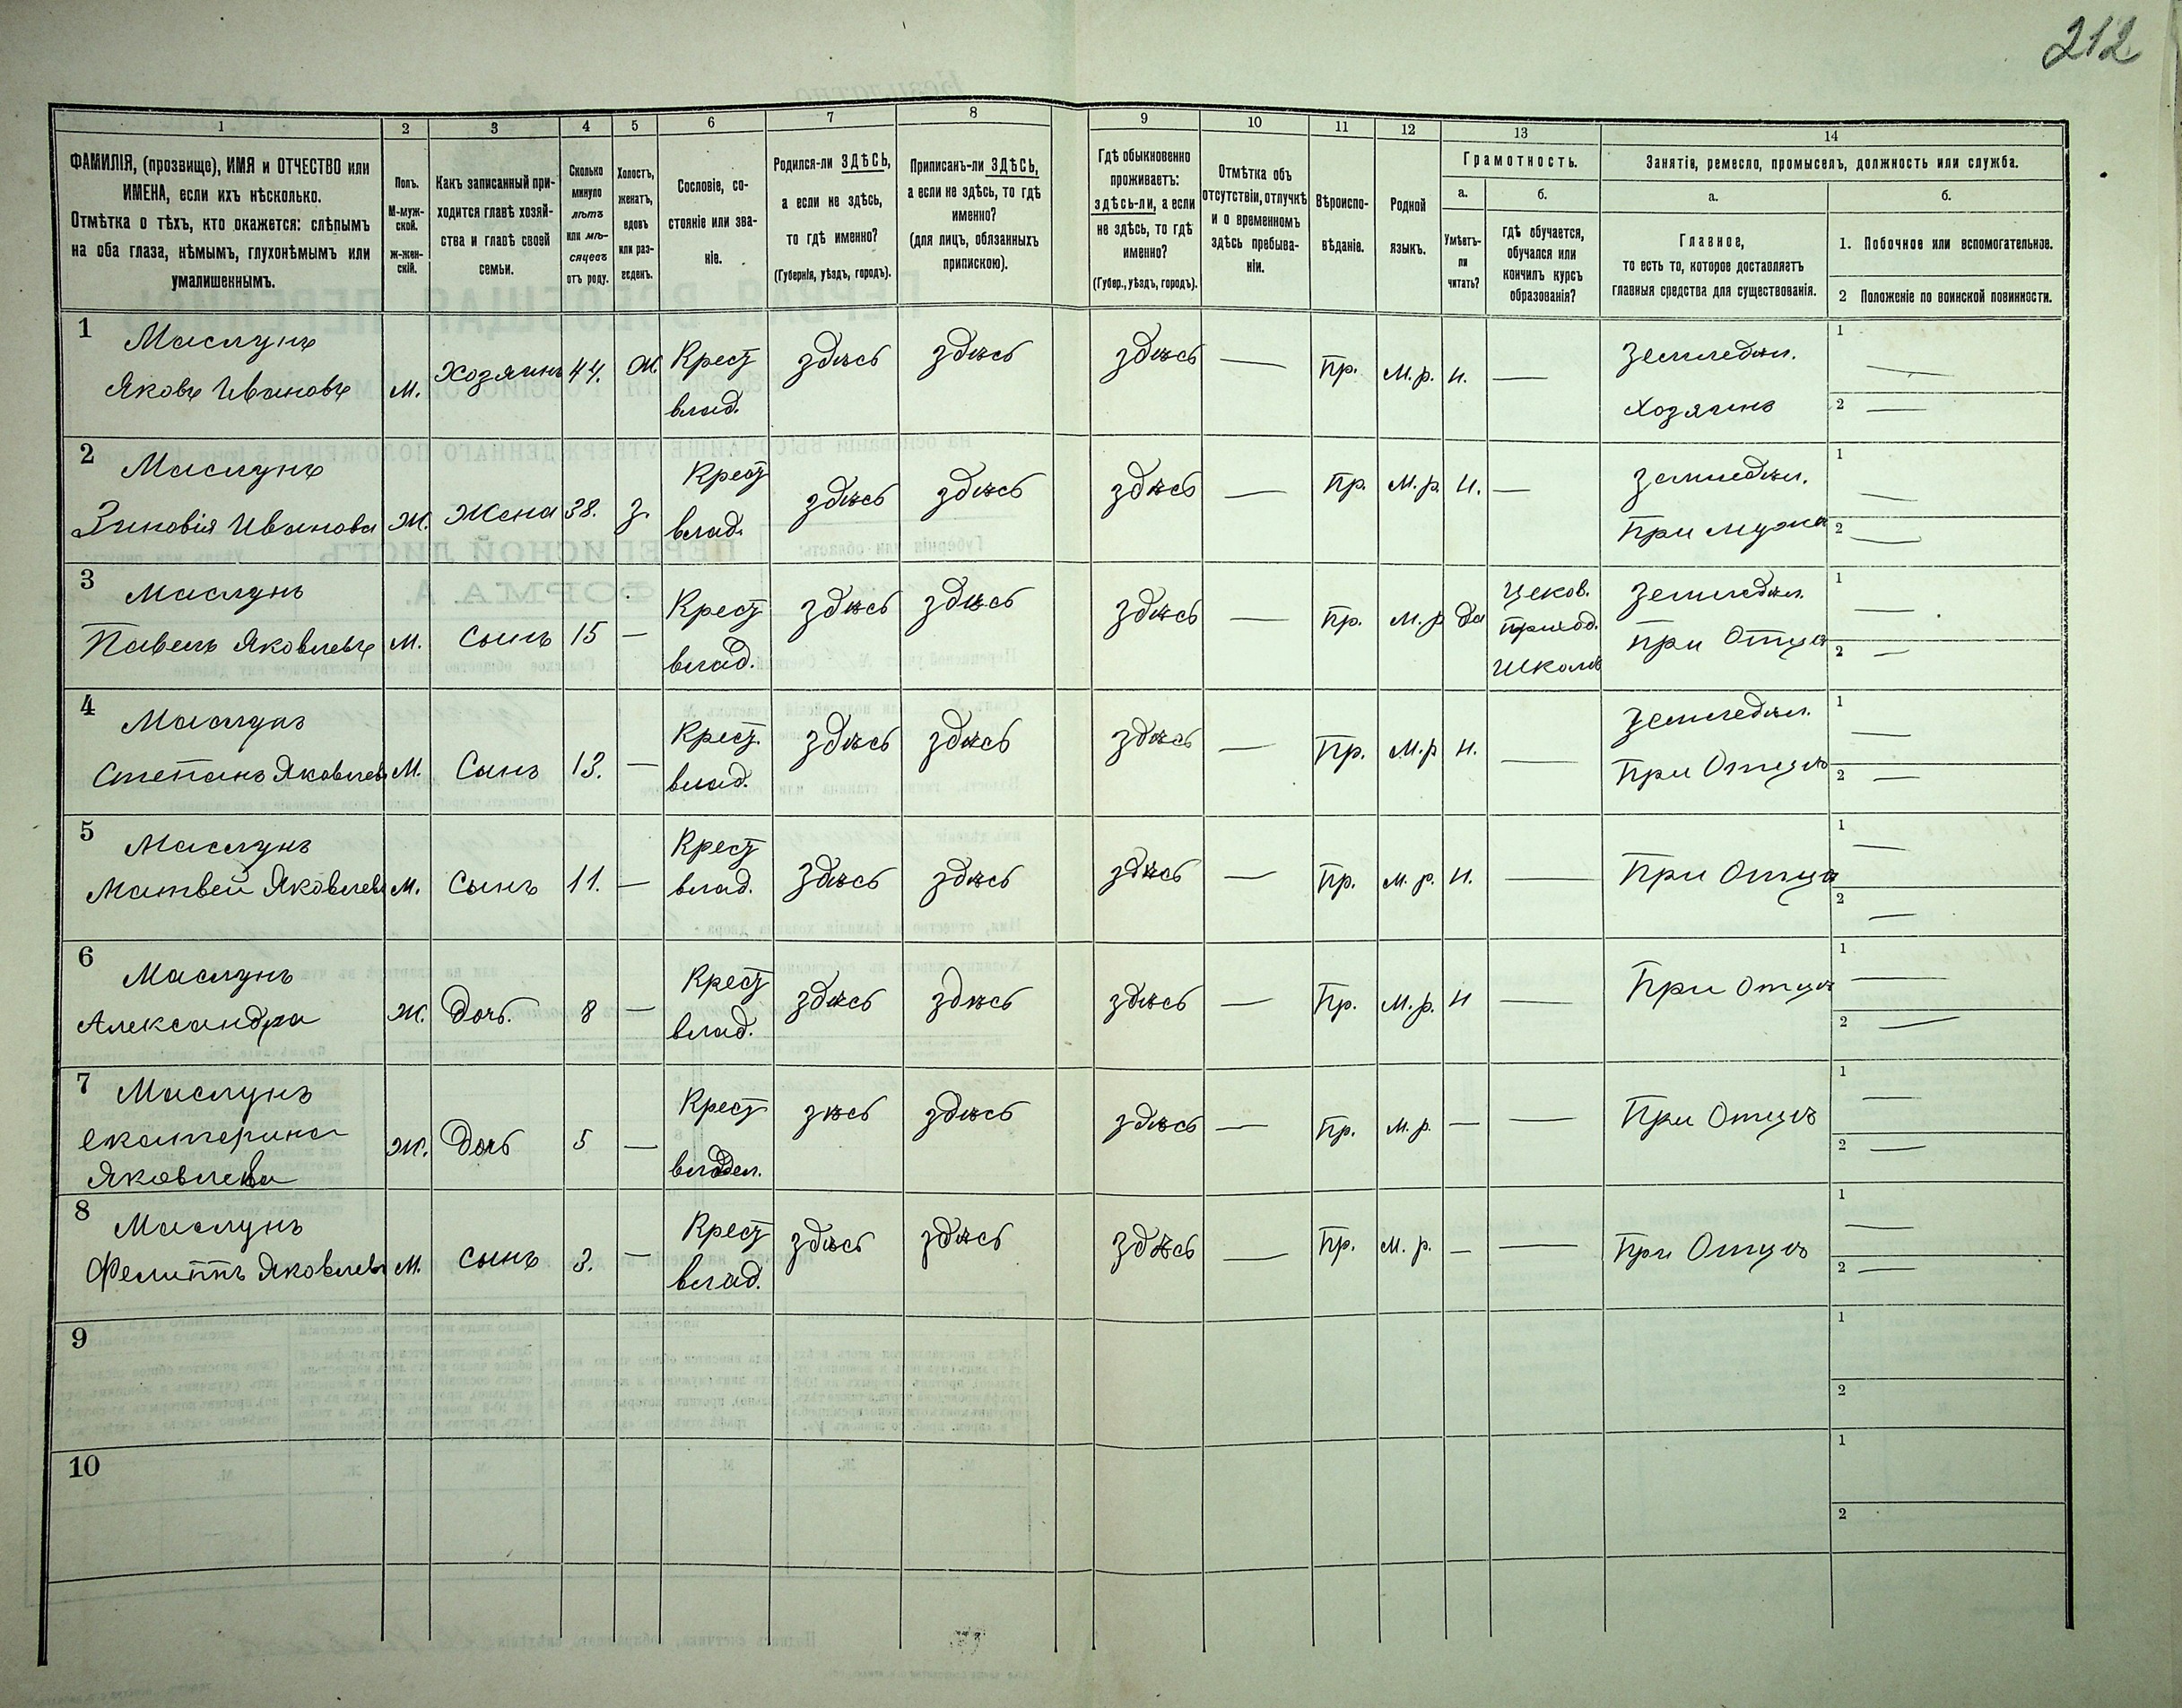 212
1
2
3
4
5
6
7
8
9
10
11
12
13
14
ФАМИЛІЯ, (прозвище), ИМЯ и ОТЧЕСТВО или
ИМЕНА, если ихъ нѣсколько.
Отмѣтка о тѣхъ, кто окажется: слѣпымъ
на оба глаза, нѣмымъ, глухонѣмымъ или
умалишеннымъ.
Полъ.
М-муж-
ской.
Ж-жен-
скій.
Какъ записанный при-
ходится главѣ хозяй-
ства и главѣ своей
семьи.
Сколько
минуло
лѣтъ
или мѣ-
сяцевъ
отъ роду.
Холостъ,
женатъ,
вдовъ
или раз-
веденъ.
Сословіе, со-
стояніе или зва-
ніе.
Родился-ли ЗДѢСЬ,
а если не здѣсь,
то гдѣ именно?
(Губернія, уѣздъ, городъ).
Приписанъ-ли ЗДѢСЬ,
а если не здѣсь, то гдѣ
именно?
(для лицъ, обязанныхъ
припискою).
Гдѣ обыкновенно
проживаетъ:
здѣсь-ли, а если
не здѣсь, то гдѣ
именно?
(Губер., уѣздъ, городъ).
Отмѣтка объ
отсутствіи, отлучкѣ
и о временномъ
здѣсь пребыва-
ніи.
Вѣроиспо-
вѣданіе.
Родной
языкъ.
Грамотность.
а.
Умѣетъ-
ли
читать?
б.
гдѣ обучается,
обучался или
кончилъ курсъ
образованія?
Занятіе, ремесло, промыселъ, должность или служба.
а.
Главное,
то есть то, которое доставляетъ
главныя средства для существованія.
б.
1. Побочное или вспомогательное.
2 Положеніе по воинской повинности.
1 Маслунъ
Яковъ Ивановъ
М. Хозяинъ 44. Ж Крест
влад.
здѣсь здѣсь здѣсь — Пр. М.р. Н. —
Земледѣл.
Хозяинъ
1 —
2 —
2 Маслунъ
Зиновія Иванова
Ж. Жена 38. З. Крест
влад.
здѣсь здѣсь здѣсь — Пр. М.р. Н. —
Земледѣл.
При мужѣ
1 —
2 —
3 Маслунъ
Павелъ Яковлевъ
М. Сынъ 15 — Крест
влад.
здѣсь здѣсь здѣсь — Пр. М.р да
Цеков.
приход.
Школѣ
Земледѣл.
При Отцѣ
1 —
2 —
4 Маслунъ
Степанъ Яковлевъ
М. Сынъ 13. — Крест.
влад.
здѣсь здѣсь здѣсь — Пр. М.р Н. —
Земледѣл.
При Отцѣ
1 —
2 —
5 Маслунъ
Матвей Яковлевъ
М. Сынъ 11. — Крест
влад.
здѣсь здѣсь здѣсь — Пр. М.р. Н. —
При Отцѣ
1 —
2 —
6 Маслунъ
Александра
Ж. Дочь. 8 — Крест
влад.
здѣсь здѣсь здѣсь — Пр. М.р. Н —
При Отцѣ
1 —
2 —
7 Маслунъ
Екатерина
Яковлева
Ж. Дочь 5 — Крест
владел.
зѣсь здѣсь здѣсь — Пр. М.р. — —
При Отцѣ
1 —
2 —
8 Маслунъ
Фелиппъ Яковлевъ
М. Сынъ 3. — Крест
влад.
здѣсь здѣсь здѣсь — Пр. М.р. — —
При Отцѣ
1 —
2 —
9
1
2
10
1
2